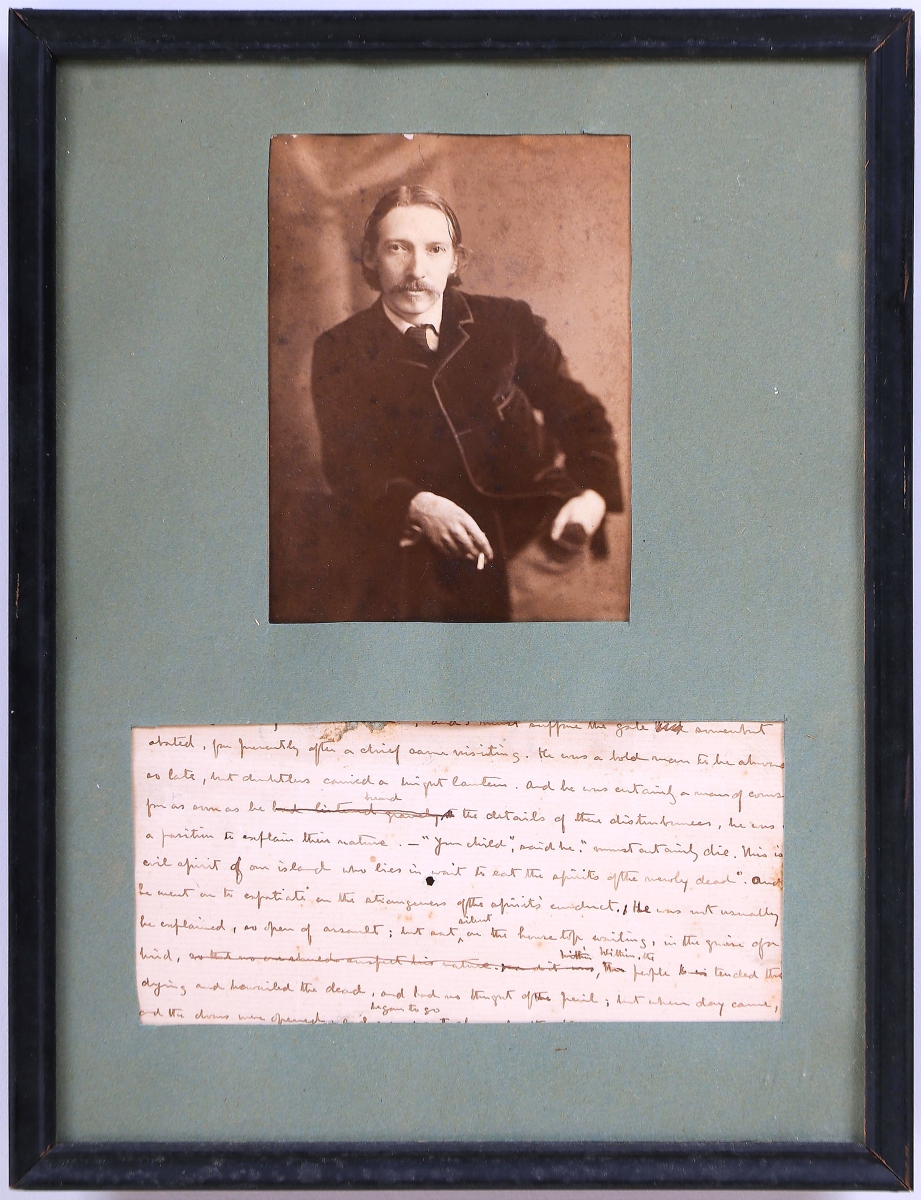 suppose the gale had somewhat
abated, for presently after a chief came visiting. He was a bold man to be abroad
so late, but doubtless carried a bright lantern. And he was certainly a man of
for as soon as he had listened gravely to heard the details of these disturbances, he was
a position to explain their nature. — "Your child", said he, "must certainly die. This is
evil spirit of our island who lies in wait to eat the spirits of the newly dead". And
he went on to expatiate on the strangeness of the spirit's conduct. He was not usually
he explained, so open of assault; but sat silent on the house top waiting, in the guise of a
bird, so that no one should suspect his nature. Within, the people tended the
dying and bewailed the dead, and had no thought of the peril; but when day came,
and the doors were opened began to go